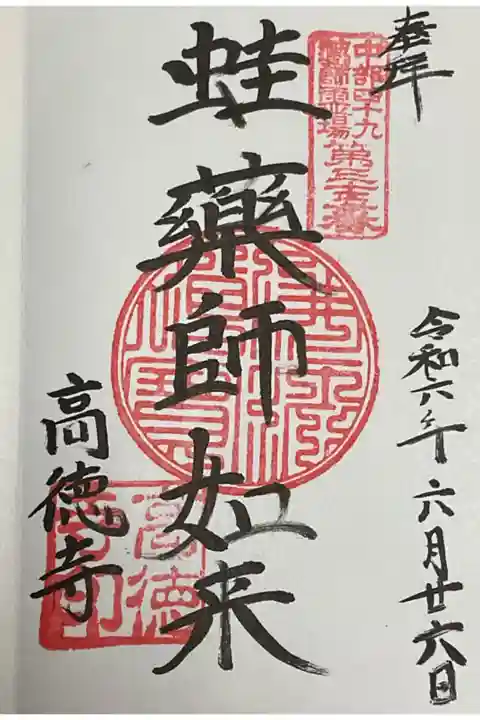 奉拝
中部四十九
薬師霊場第三十番
令和六年六月廿六日
蛙藥師如来
高徳寺
高徳
寺印